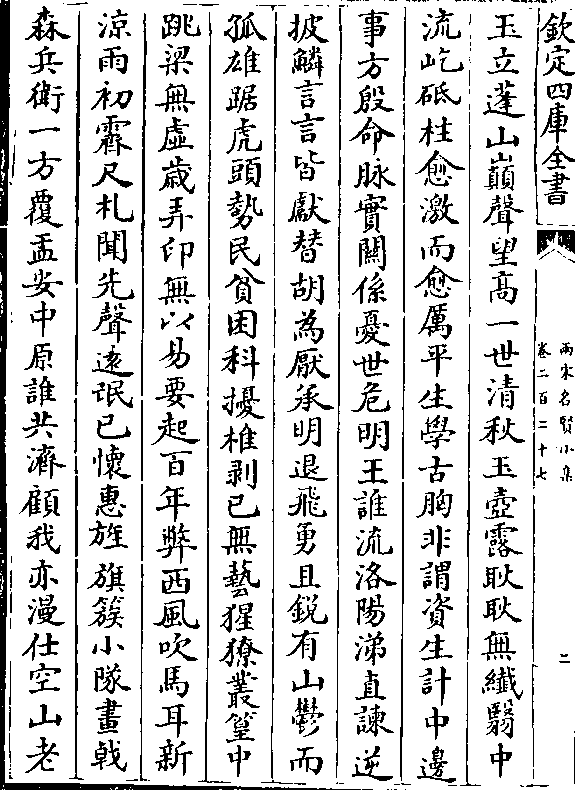 欽定四庫全書
兩宋名賢小集
卷二百二十七
二
玉立蓬山巔聲望髙一世清秋玉壺露耿耿無纎翳中
流屹砥柱愈激而愈厲平生學古胸非謂資生計中邊
事方殷命脉實關係憂世危明王誰流洛陽涕直諫逆
披鱗言言皆獻替胡為厭承明退飛勇且鋭有山鬱而
孤雄踞虎頭勢民貧困科擾椎剥已無藝猩獠叢篁中
跳梁無虚歳弄印無以易要起百年弊西風吹馬耳新
涼雨初霽尺札聞先聲逺氓已懷惠旌旗簇小隊畫戟
森兵衛一方覆盂安中原誰共濟顧我亦漫仕空山老